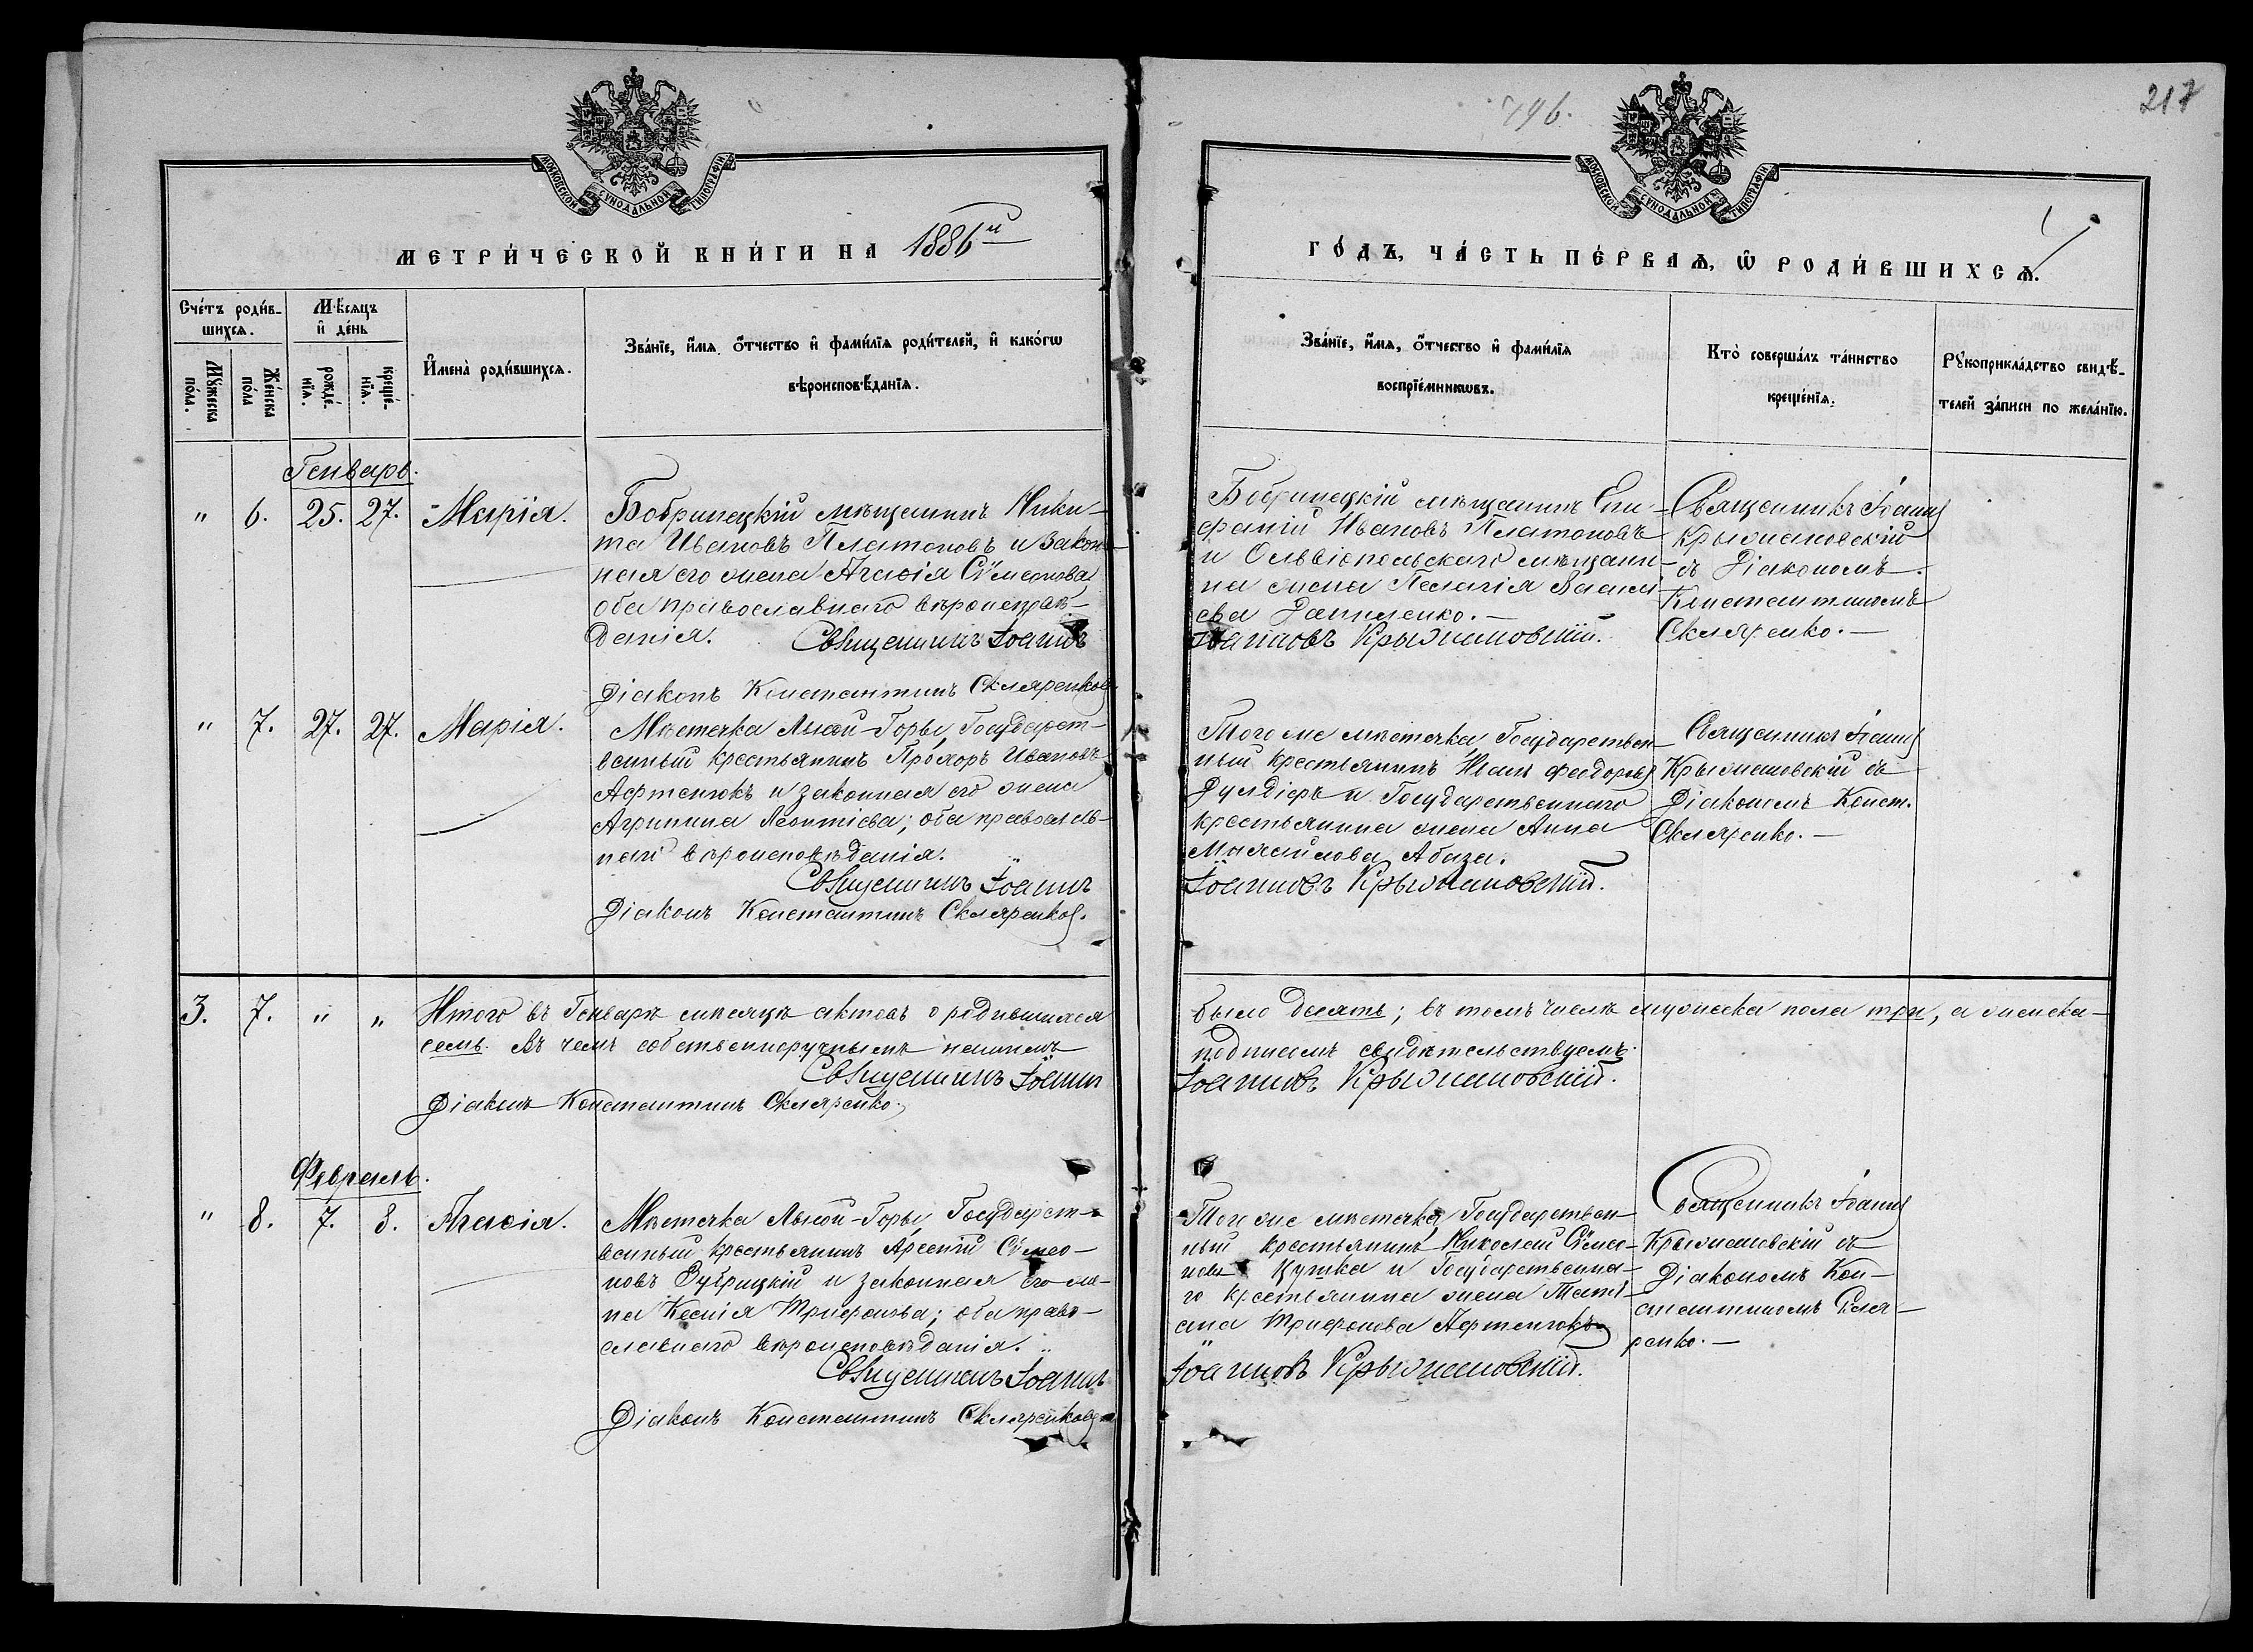 496.
217
МОСКОВСКОЙ СѴНОДАЛЬНОЙ ТИПОГРАФІИ
МОСКОВСКОЙ СѴНОДАЛЬНОЙ ТИПОГРАФІИ
МЕТРИ́ЧЕСКОЙ КНИ́ГИ НА 1886й
ГО́ДЪ, ЧА́СТЬ ПЕ́РВАѦ, Ѡ РОДИ́ВШИХСѦ.
Сче́тъ роди́в-
шихсѧ.
Мꙋ́жеска
по́ла.
Же́нска
по́ла
Мѣ́сяцъ
и҆ де́нь
рожде́-
нїѧ.
креще́-
нїѧ.
И҆мена̀ роди́вшихсѧ.
Зва́нїе, и҆́мѧ, ѻ҆́тчество и҆ фами́лїѧ роди́телей, и҆ како́гѡ
вѣроисповѣ́данїѧ.
Зва́нїе, и҆́мѧ, ѻ҆́тчество и҆ фами́лїѧ
воспрїе́мникѡвъ.
Кто̀ соверша́лъ та́инство
креще́нїѧ.
Рꙋкоприкла́дство свидѣ́-
телей за́писи по жела́нїю.
Генварь.
" 6. 25. 27. Марія.
Бобринецкій мѣщанинъ Ники-
та Ивановъ Платоновъ и закон-
ная его жена Агаѳія Сѵмеонова
оба православнаго вѣроисповѣ-
данія. Священникъ Іоаннъ
Діаконъ Константинъ Скляренко
Бобринецкій мѣщанинъ Епи-
фаній Ивановъ Платоновъ
и Ольвіопольскаго мѣщани-
на жена Пелагія Васил-
ева Даниленко.-
Іоанновъ Крыжановскій.
Священникъ Іоаннъ
Крыжановскій
съ Діакономъ
Константиномъ
Скляренко.-
" 7. 27. 27. Марія.
Мѣстечка Лысой-Горы, Государст-
венный крестьянинъ Прохоръ Ивановъ
Афтенюкъ и законная его жена
Агрипина Леонтіева; оба православ-
наго вѣроисповѣданія.
Священникъ Іоаннъ
Діаконъ Константинъ Скляренко.
Того же мѣстечка, Государствен-
ный крестьянинъ Иванъ Феодоровъ
и Государственнаго
крестьянина жена Анна
Михайлова Абаза.
Іоанновъ Крыжановскій.
Священникъ Іоаннъ
Крыжановскій съ
Діакономъ Конст.
Скляренко.-
3. 7. " " Итого въ Генварѣ мѣсяцѣ актовъ о родившихся
было десять; въ томъ числѣ мужеска пола три, а женска-
семь. Въ чемъ собственноручнымъ нашимъ
подписомъ свидѣтельствуемъ.
Священникъ Іоаннъ
Іоанновъ Крыжановскій.
Діаконъ Константинъ Скляренко.
Февраль.
" 8. 7. 8. Агаѳія.
Мѣстечка Лысой-Горы, Государст-
венный крестьянинъ Арсеній Сѵмео-
новъ Зубрицкій и законная его же-
на Ксенія Трифонова; оба право-
славнаго вѣроисповѣданія.
Священникъ Іоаннъ
Діаконъ Константинъ Скляренко
Того же мѣстечка, Государствен-
ный крестьянинъ Николай Сѵмео-
новъ Цушка и Государственна-
го крестьянина жена Таті-
ана Трифонова Афтенюкъ
Іоанновъ Крыжановскій.
Священникъ Іоаннъ
Крыжановскій съ
Діакономъ Кон-
стантиномъ Скля-
ренко.-